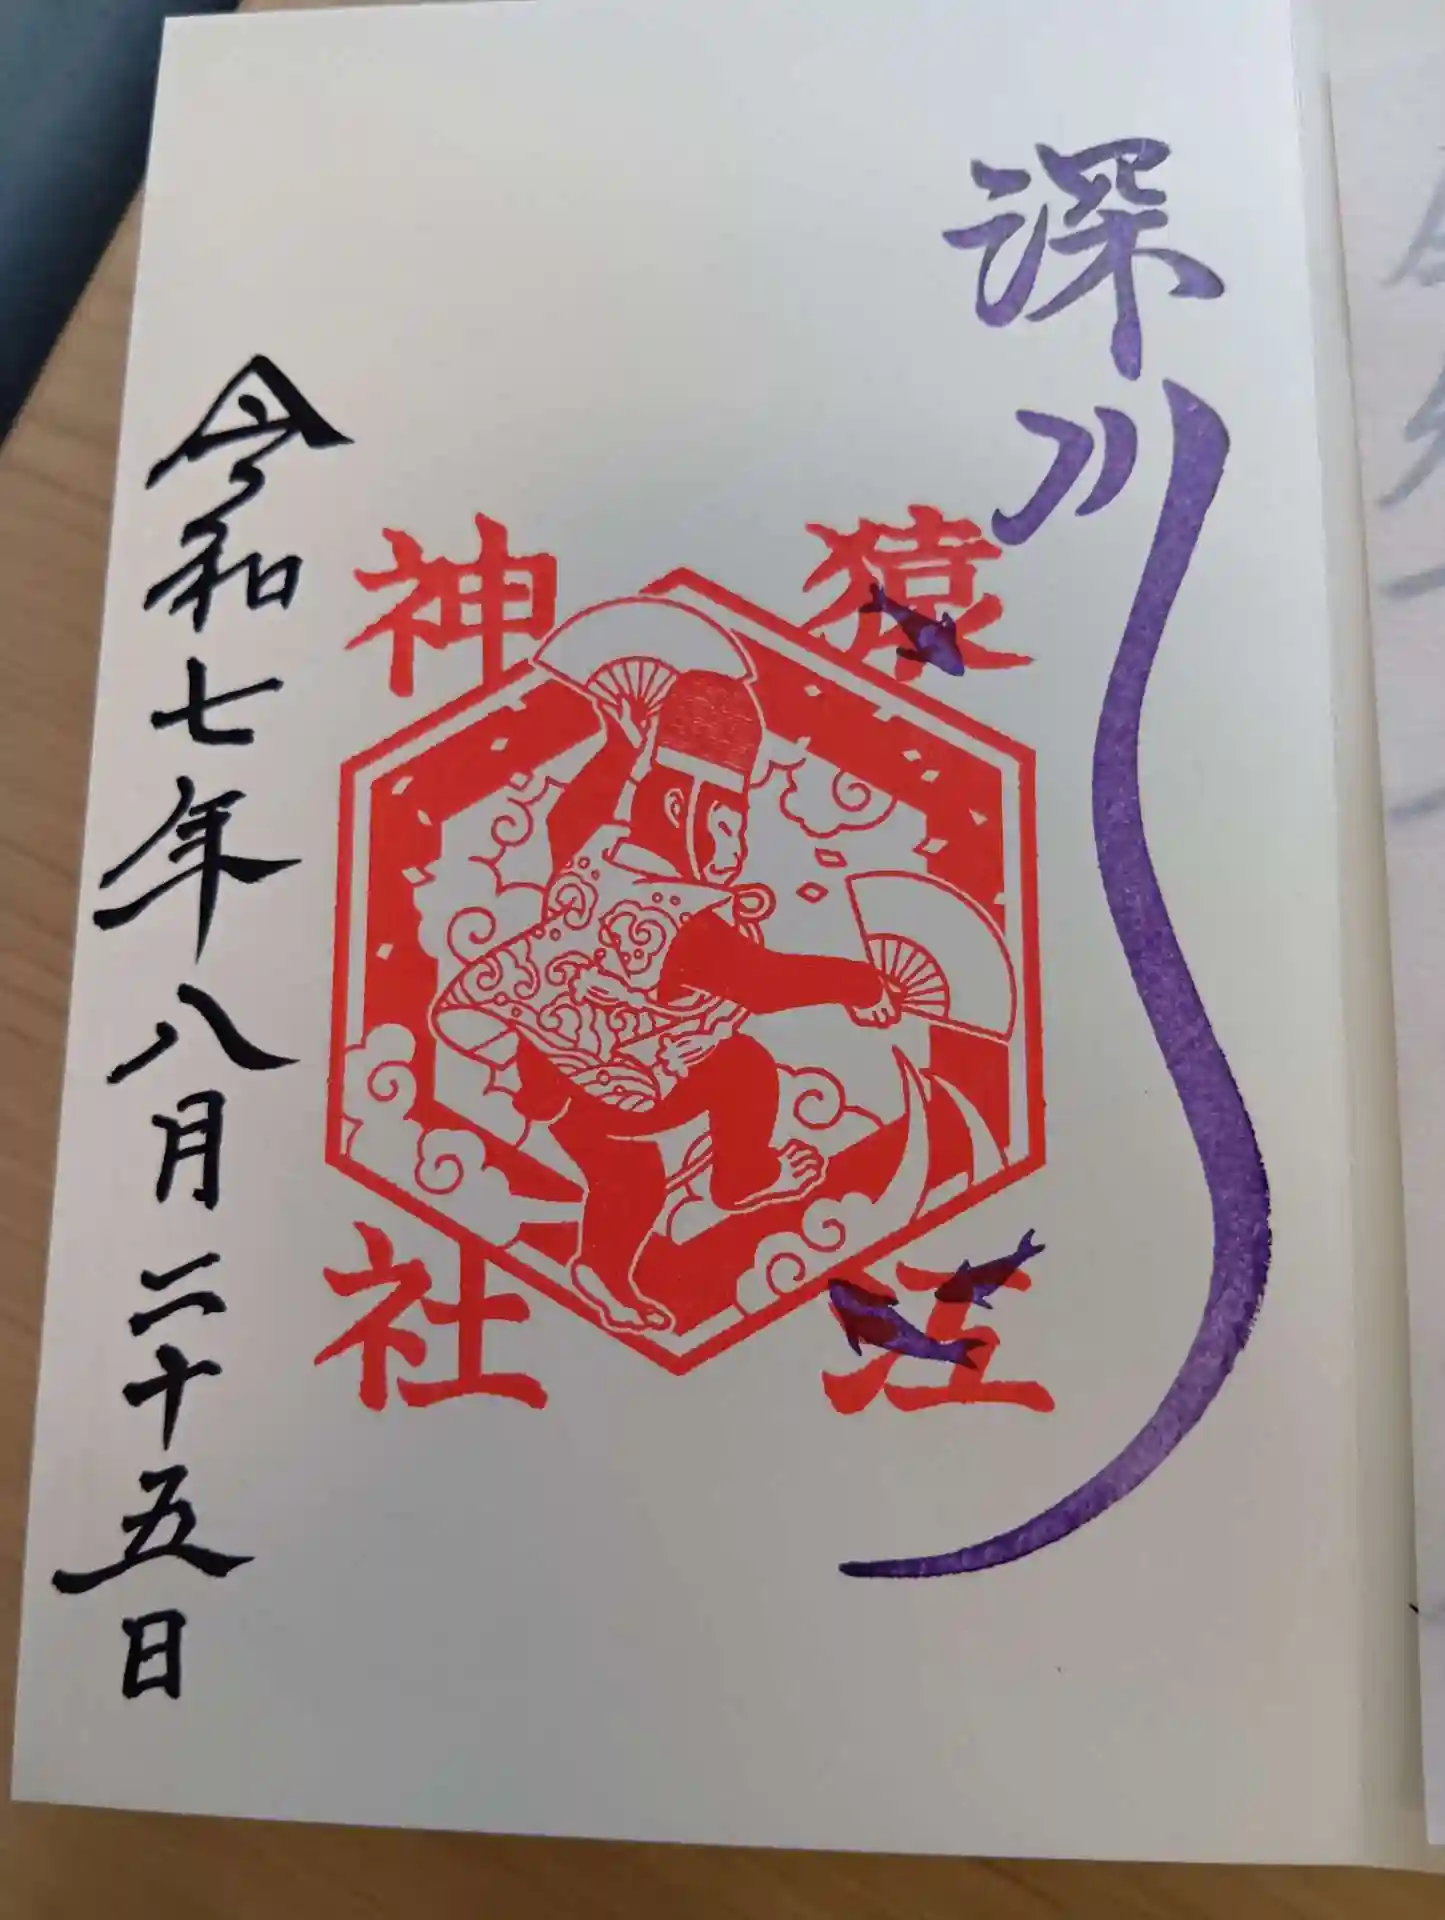 深川
猿江
神社
令和七年八月二十五日